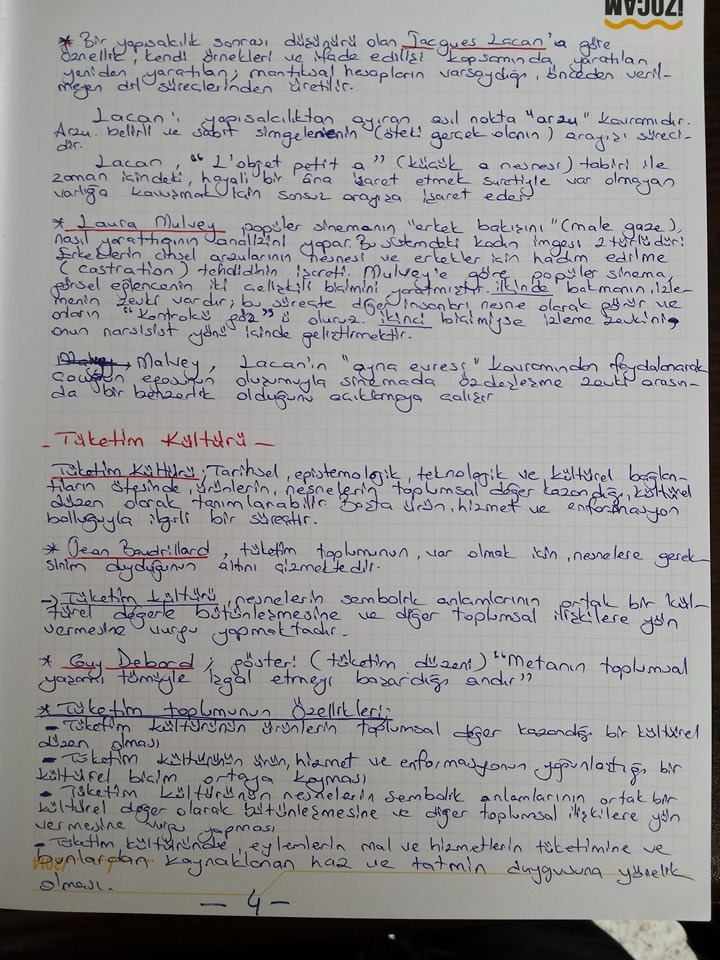 İZOCAM
* Bir yapısalcılık sonrası düşünürü olan Jacques Lacan'a göre
öznellik, kendi örnekleri ve ifade edilişi kapsamında yaratılan
yeniden yaratılan; mantıksal hesapların varsaydığı, önceden veril-
meyen dil süreçlerinden üretilir.
Lacan'ı yapısalcılıktan ayıran asıl nokta "arzu" kavramıdır.
Arzu belirli ve sabit simgelemenin (öteki gerçek olanın) arayışı süreci-
dir.
Lacan, "L'objet petit a" (küçük a nesnesi) tabiri ile
zaman içindeki, hayali bir âna işaret etmek suretiyle var olmayan
varlığa kavuşmak için sonsuz arayışa işaret eder.
* Laura Mulvey popüler sinemanın "erkek bakışını" (male gaze),
nasıl yarattığının analizini yapar. Bu sistemdeki kadın imgesi 2 türlüdür:
Erkeklerin cinsel arzularının nesnesi ve erkekler için hadım edilme
(castration) tehdidinin işareti. Mulvey'e göre popüler sinema,
görsel eğlencenin iki çelişkili biçimini yaratmıştır. İlkinde bakmanın, izle-
menin zevki vardır; bu süreçte diğer insanları nesne olarak görür ve
onların "kontrolcü göz"ü oluruz. İkinci biçimiyse izleme zevkini,
onun narsisist yönü içinde geliştirmektir.
Malvey, Lacan'ın "ayna evresi" kavramından faydalanarak
çocuğun egosunun oluşumuyla sinemada özdeşleşme zevki arasın-
da bir benzerlik olduğunu açıklamaya çalışır
- Tüketim Kültürü -
Tüketim Kültürü: Tarihsel, epistemolojik, teknolojik ve kültürel bağlan-
tıların ötesinde, ürünlerin, nesnelerin toplumsal değer kazandığı, kültürel
düzen olarak tanımlanabilir. Başta ürün, hizmet ve enformasyon
bolluğuyla ilgili bir süreçtir.
* Jean Baudrillard, tüketim toplumunun, var olmak için, nesnelere gerek-
sinim duyduğunun altını çizmektedir.
-> Tüketim kültürü, nesnelerin sembolik anlamlarının ortak bir kül-
türel değerle bütünleşmesine ve diğer toplumsal ilişkilere yön
vermesine vurgu yapmaktadır.
* Guy Debord, gösteri (tüketim düzeni) "Metanın toplumsal
yaşamı tümüyle işgal etmeyi başardığı andır"
* Tüketim toplumunun Özellikleri;
- Tüketim kültürünün ürünlerin toplumsal değer kazandığı bir kültürel
düzen olması
- Tüketim kültürünün ürün, hizmet ve enformasyonun yoğunlaştığı bir
kültürel biçim ortaya koyması
- Tüketim kültürünün nesnelerin sembolik anlamlarının ortak bir
kültürel değer olarak bütünleşmesine ve diğer toplumsal ilişkilere yön
vermesine vurgu yapması
- Tüketim kültüründe, eylemlerin mal ve hizmetlerin tüketimine ve
bunlardan kaynaklanan haz ve tatmin duygusuna yönelik
olması.
- 4 -